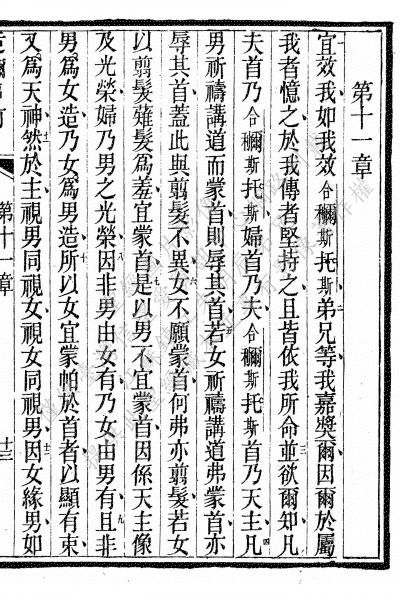 第十一章
宜效我如我效合𥻘斯托斯弟兄等我嘉獎爾因爾於屬
我者憶之於我傳者堅持之且皆依我所命並欲爾知凡
夫首乃合𥻘斯托斯婦首乃夫合𥻘斯托斯首乃天主凡
男祈禱講道而蒙首則辱其首若女祈禱講道弗蒙首亦
辱其首蓋此與翦髮不異女不願蒙首何弗亦翦髮若女
以翦髮薙髮爲羞宜蒙首是以男不宜蒙首因係天主像
及光榮婦乃男之光榮因非男由女有乃女由男有且非
男爲女造乃女爲男造所以女宜蒙帕於首者以顯有束
又爲天神然於主視男同視女視女同視男因女緣男如
第十一章